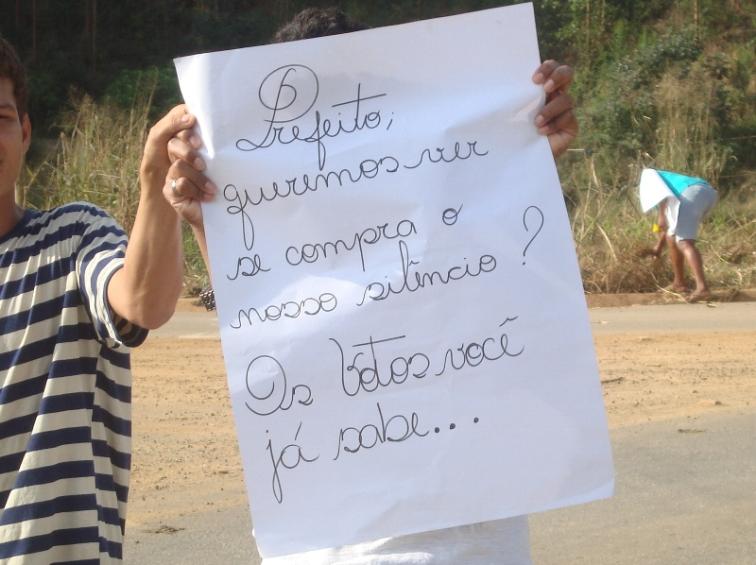 Prefeito;
queremos ver
se compra o
nosso silêncio ?
Os Votos você
já sabe...